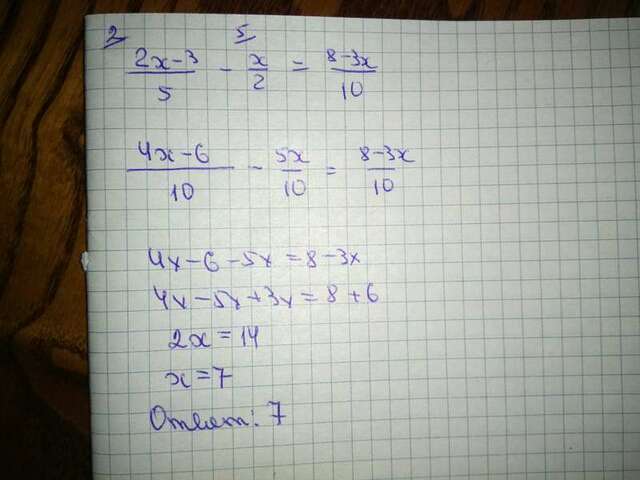 2/ 5/
(2x-3)/5 - x/2 = (8-3x)/10
(4x-6)/10 - 5x/10 = (8-3x)/10
4x-6-5x=8-3x
4x-5x+3x=8+6
2x=14
x=7
Ответ: 7